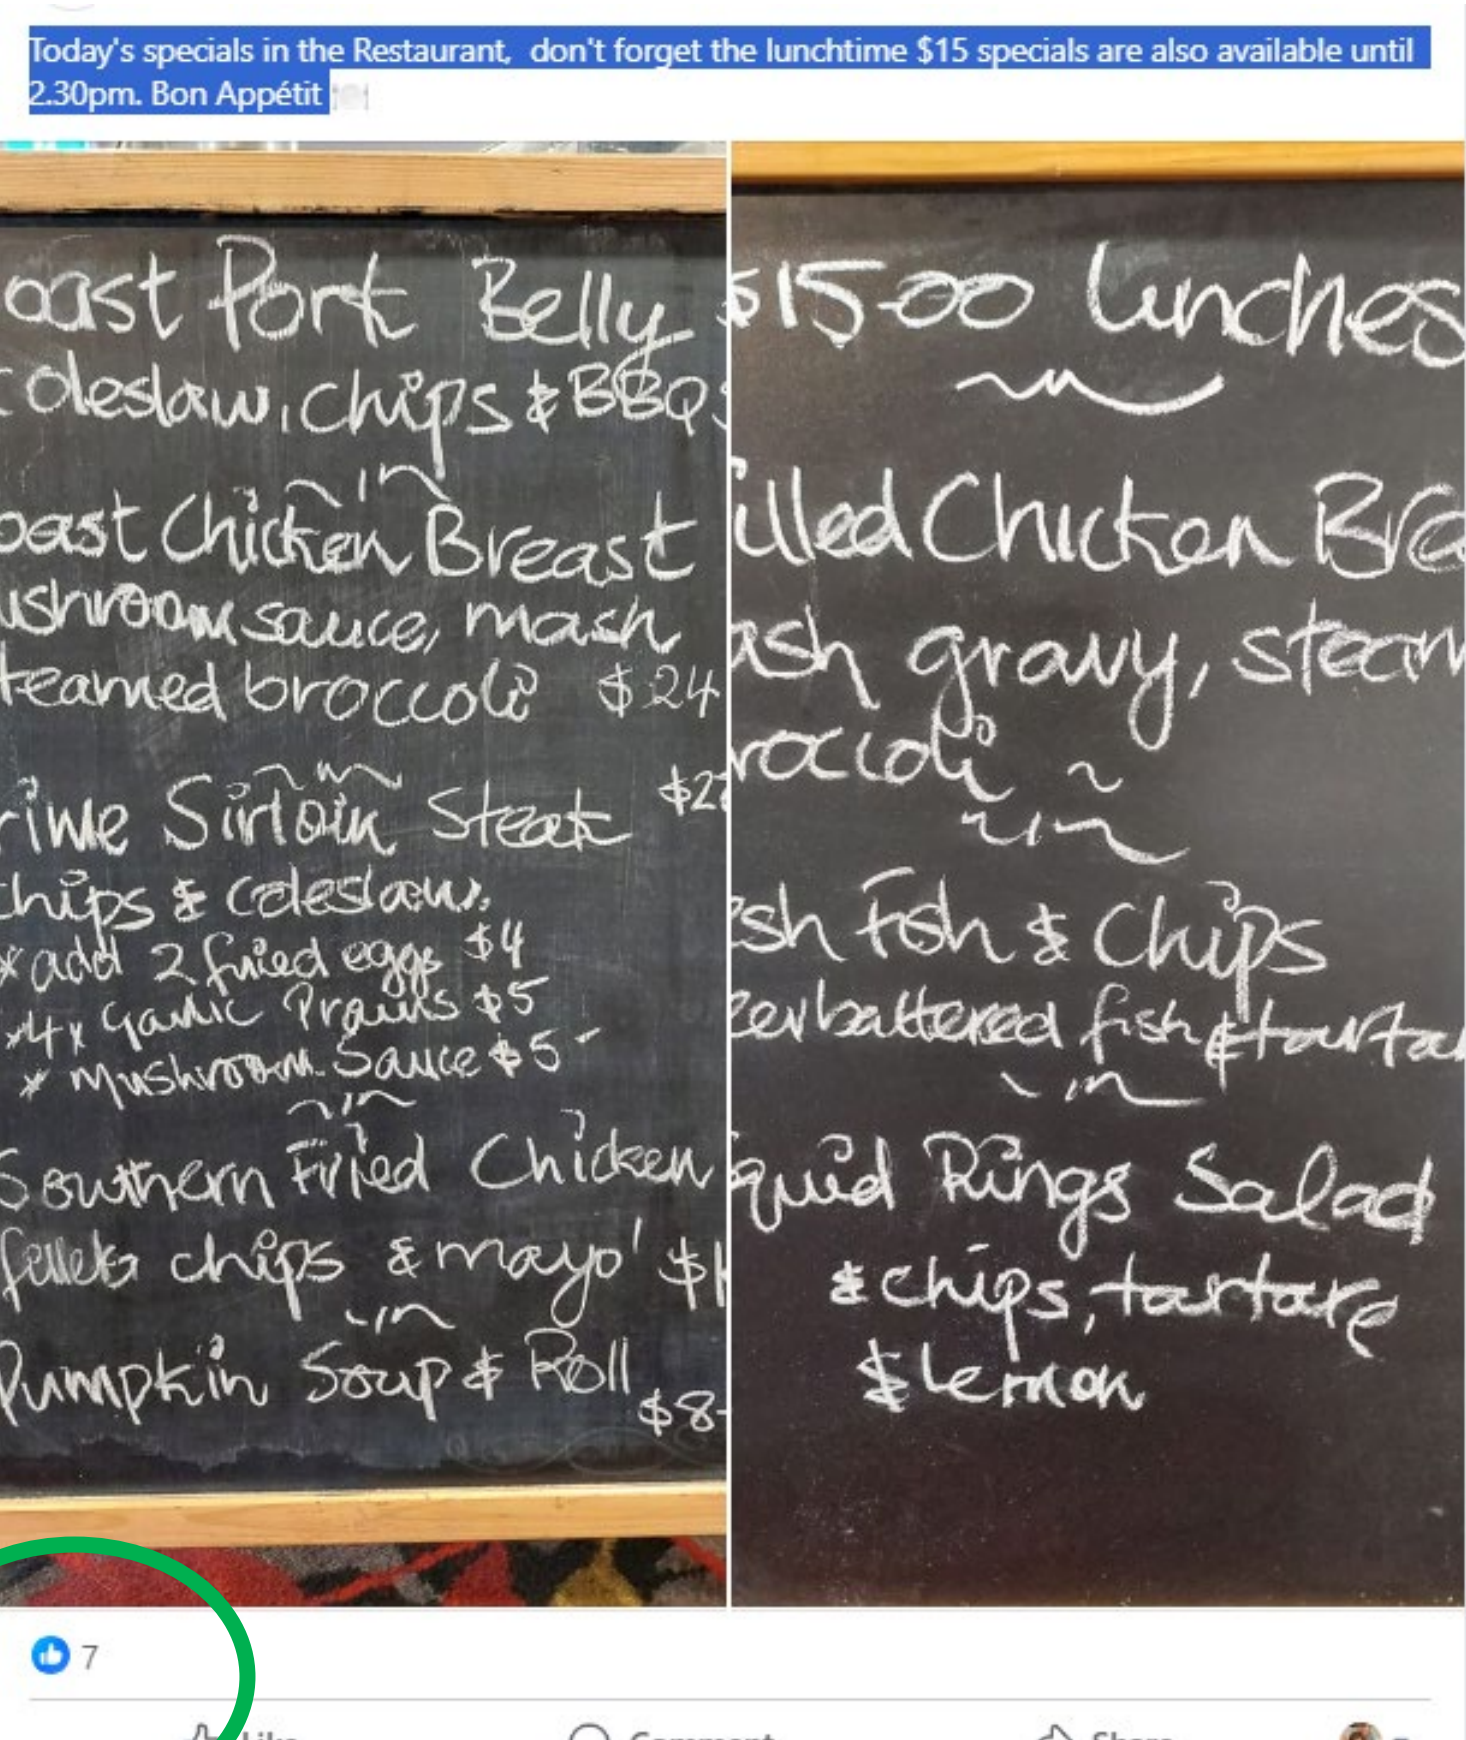 Today's specials in the Restaurant, don't forget the lunchtime $15 specials are also available until
2.30pm. Bon Appétit
oast Pork Belly
Coleslaw, chips & BBQ
oast Chicken Breast
ushroom sauce, mash
teamed broccoli $24
rime Sirloin Steak $2
chips & coleslaw.
* add 2 fried eggs $4
*4x Garlic Prawns $5
* Mushroom Sauce $5-
Southern Fried Chicken
fillets chips & mayo' $1
Pumpkin Soup & Roll
$8-
$15-00 Lunches
illed Chicken Brea
ash gravy, steam
roccoli
esh Fish & Chips
eerbattered fish & tarta
quid Rings Salad
& chips, tartare
& lemon
7
Like Comment Share